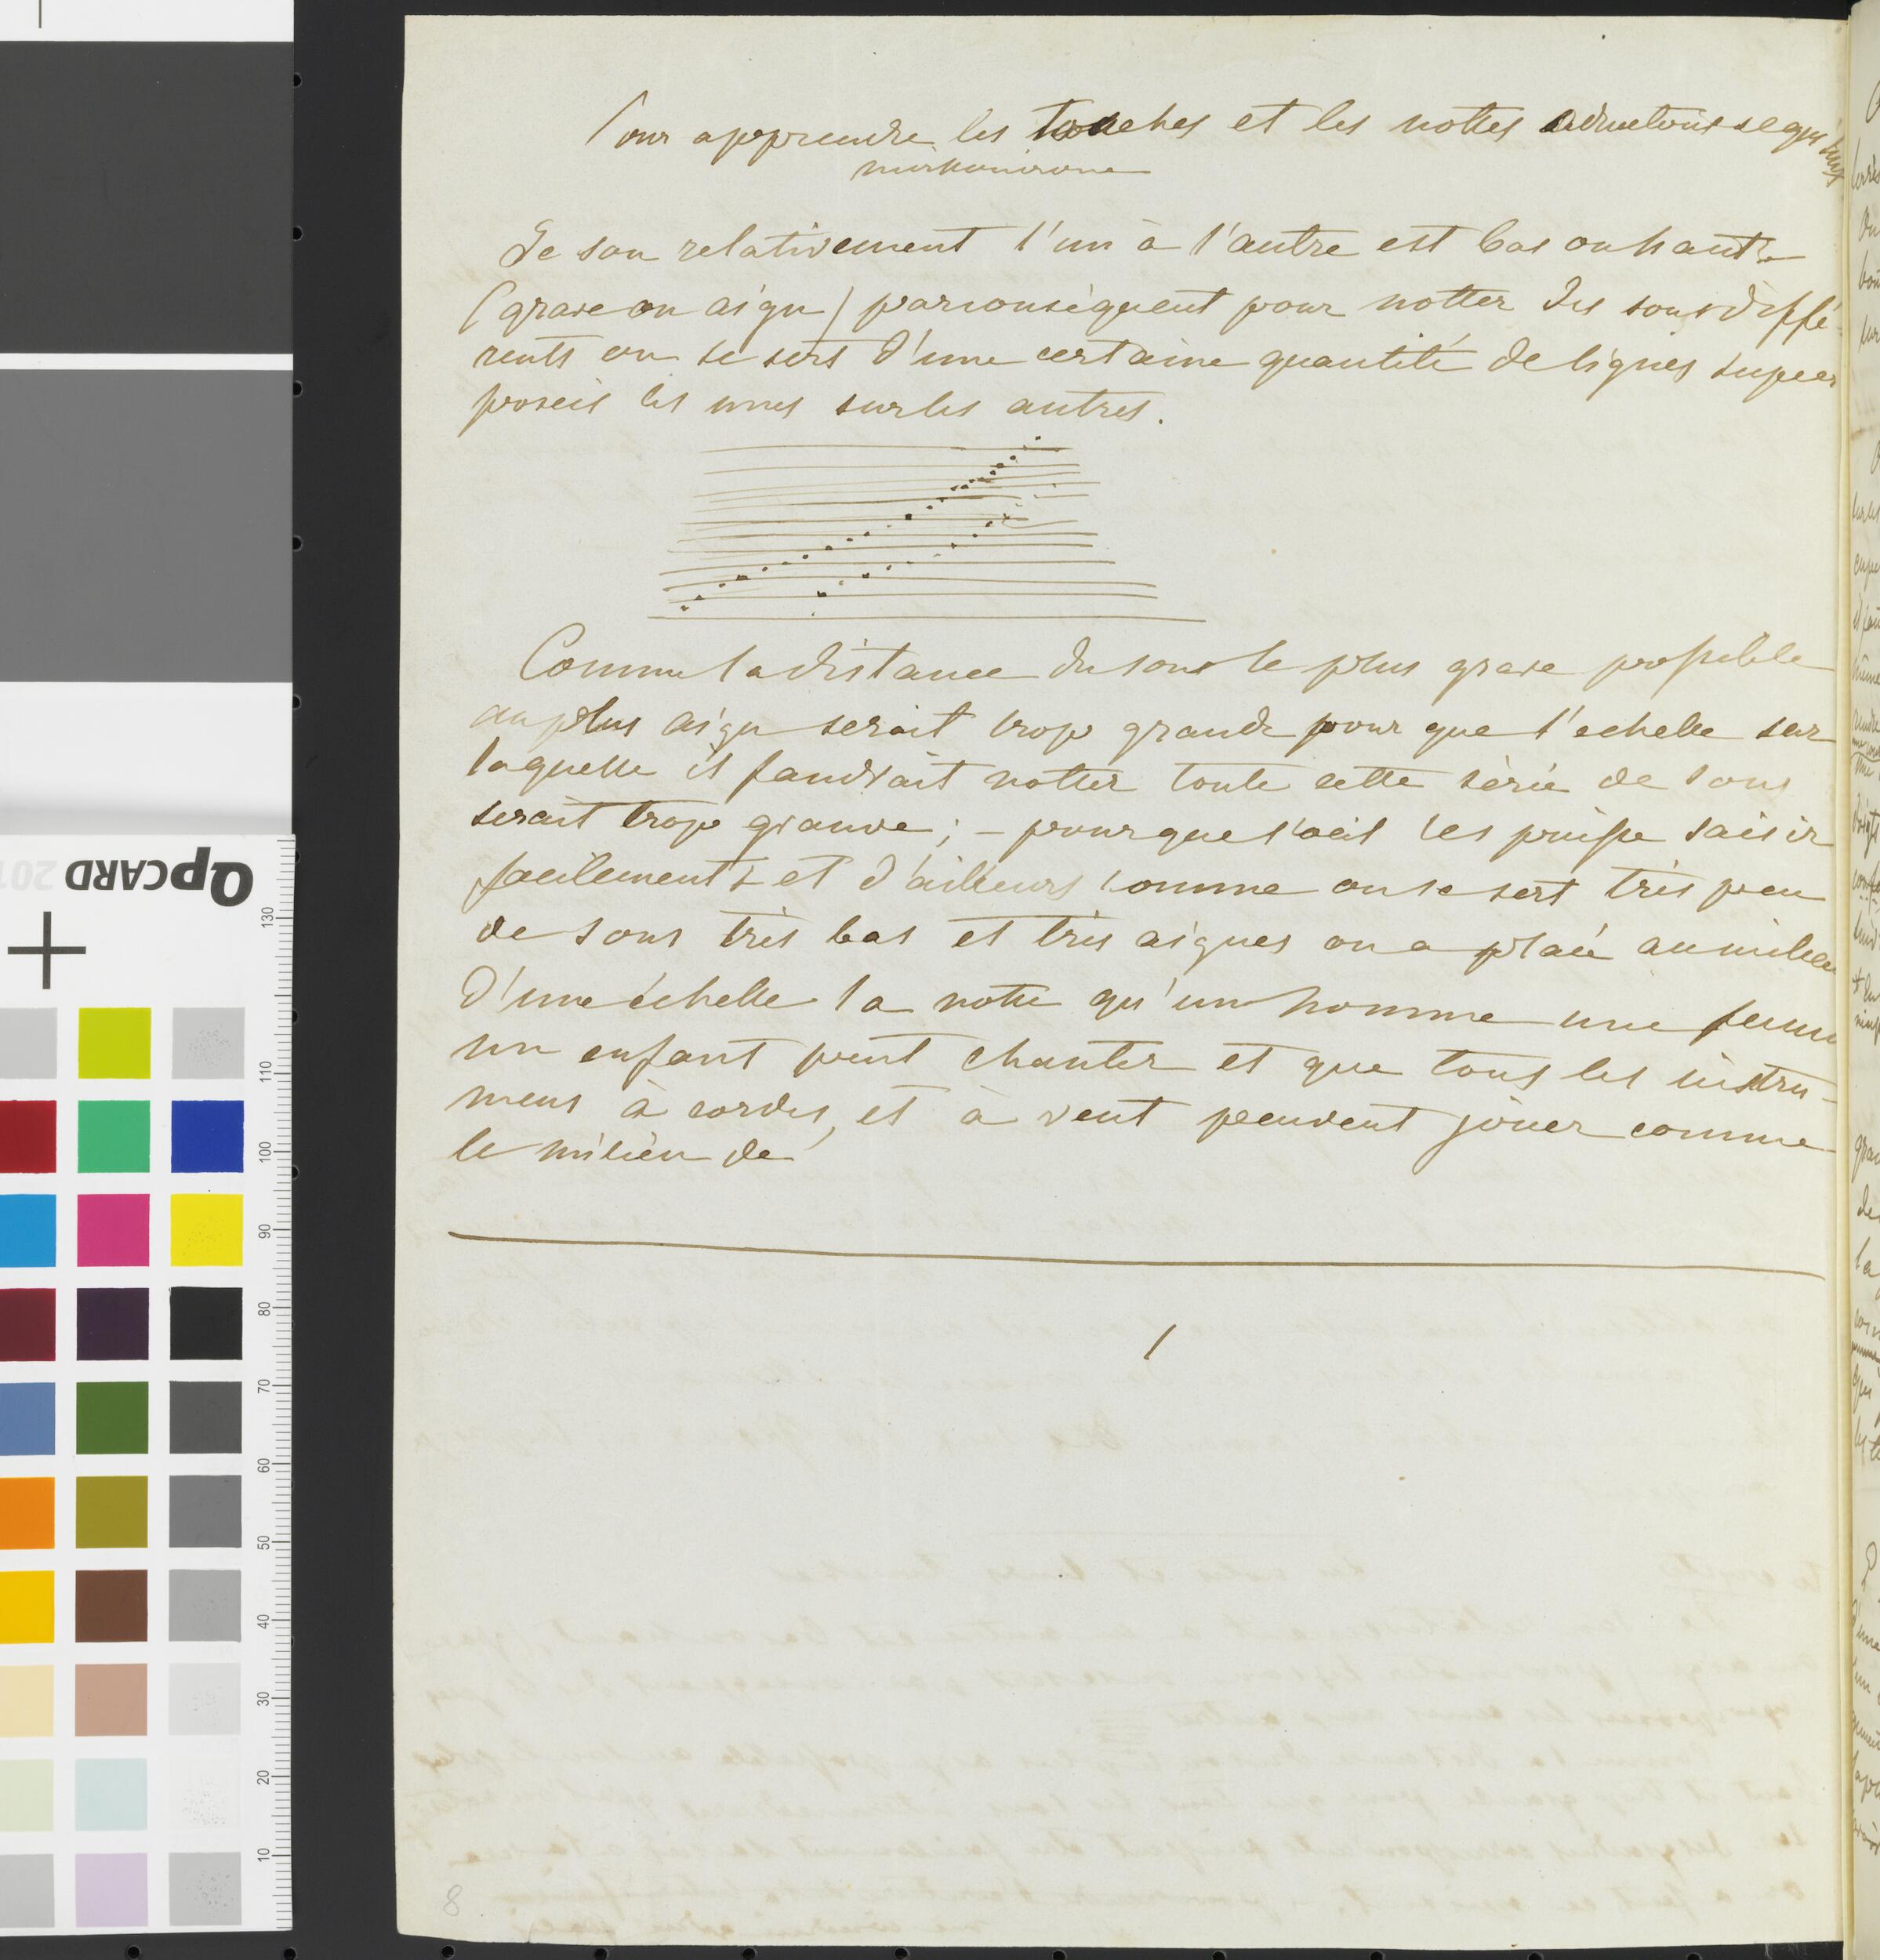 Pour apprendre les touches et les nottes
Le son relativement l'un à l'autre est bas ou haut
(grave ou aigu) parconséquent pour notter des sons diffé-
rents on se sert d'une certaine quantité de lignes super
poseés les unes sur les autres.
Comme la distance du son le plus grave possible
au plus aigu serait trop grande pour que l'echelle sur
laquelle il faudrait notter toute cette série de sons
serait trop grande; - pourque l'oeil les puisse saisir
facilement et d'ailleurs comme on se sert très peu
de sons très bas et très aigues on a placé au milieu
d'une échelle la notte qu'un homme une femme
un enfant peut chanter et que tous les instru-
mens à cordes, et à vent peuvent jouer comme
le milieu de
1
8
QPCARD 201
130
110
100
90
80
70
60
50
40
30
20
10